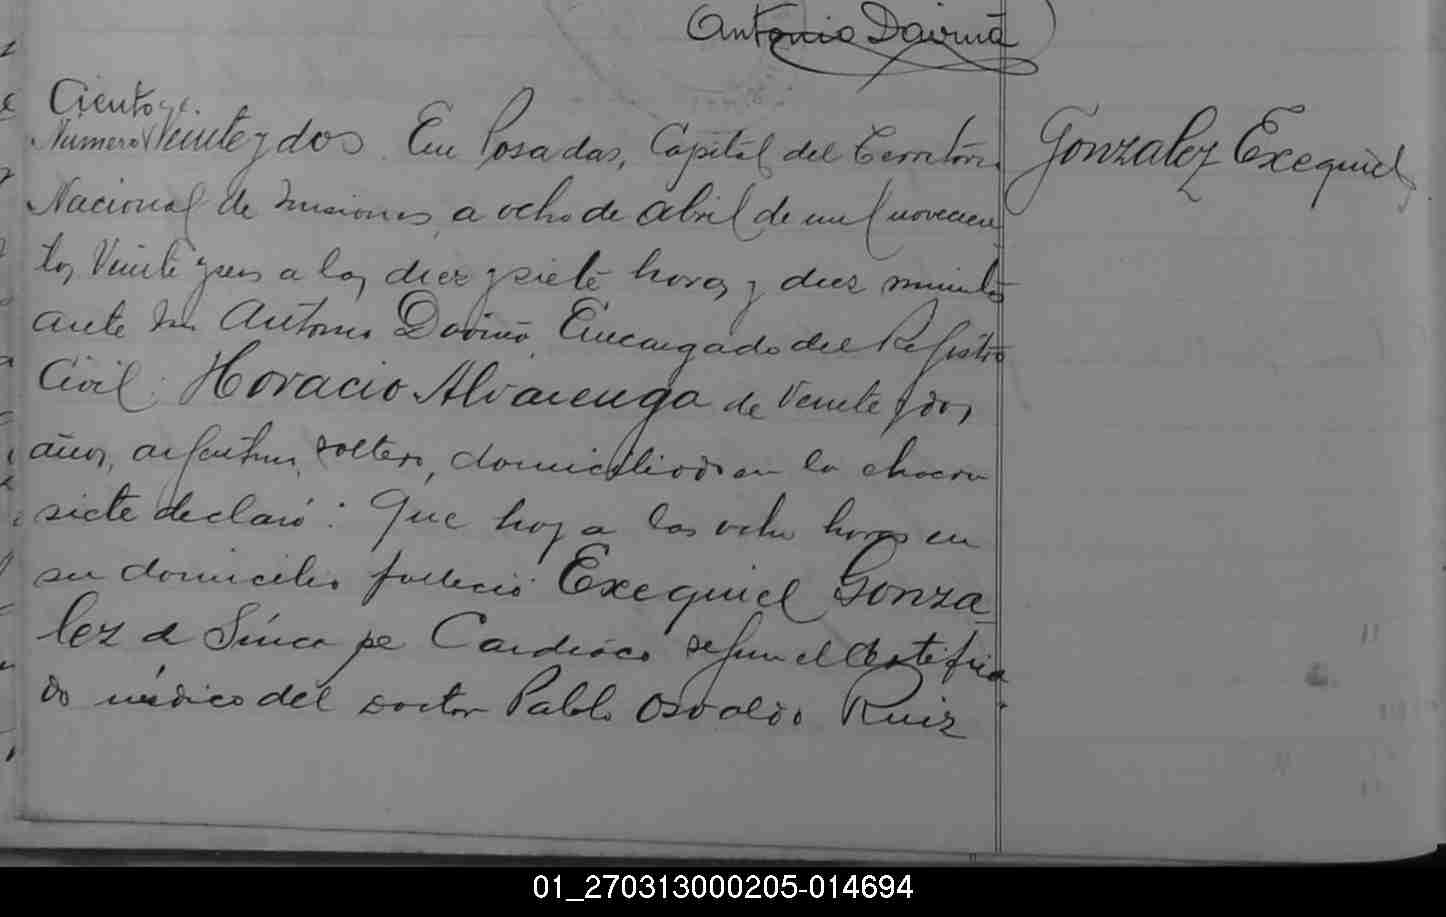 Antonio Daviña
Ciento
Número Veinte y dos. En Posadas, Capital del Territorio
Gonzalez Exequiel
Nacional de Misiones, a ocho de abril de mil novecien
tos Veinte y seis a las diez y siete horas y diez minutos
ante mi Antonio Daviña, Encargado del Registro
Civil: Horacio Alvarenga de Veinte y dos
años, argentino, soltero, domiciliado en la chacra
siete declaró: Que hoy a las ocho horas en
su domicilio falleció Exequiel Gonza
lez de Síncope Cardíaco segun el Certifica
do médico del Doctor Pablo Osvaldo Ruiz
01_270313000205-014694